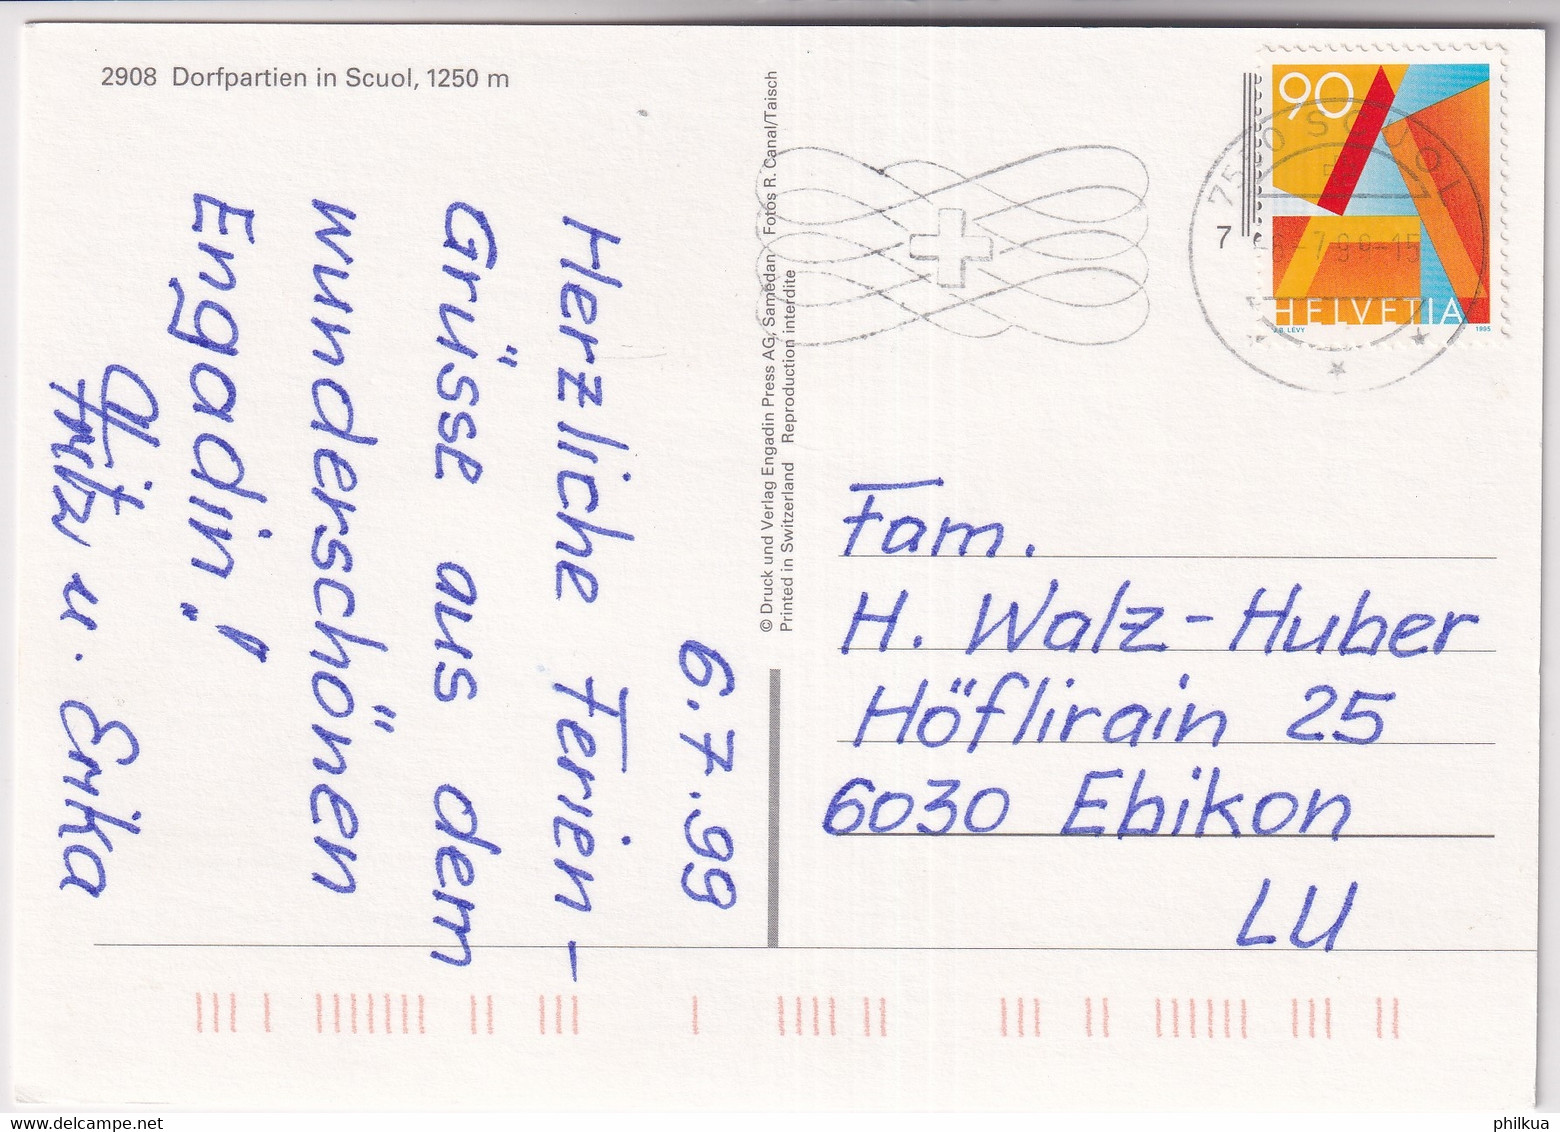 2908 Dorfpartien in Scuol, 1250 m
6.7.99
Herzliche Ferien-
Grüsse aus dem
wunderschönen
Engadin!
Fritz u. Erika
© Druck und Verlag Engadin Press AG, Samedan Fotos R. Canal/Taisch
Printed in Switzerland Reproduction interdite
90
HELVETIA
J.B. LÉVY 1995
7550 SCUOL
7
-6.-7.99-15
Fam.
H. Walz-Huber
Höflirain 25
6030 Ebikon
LU
philkua